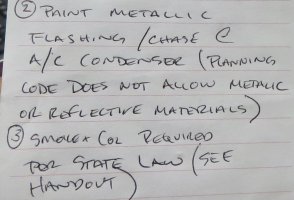 ② PAINT METALLIC
FLASHING / CHASE @
A/C CONDENSER (PLANNING
CODE DOES NOT ALLOW METALIC
OR REFLECTIVE MATERIALS)
③ SMOKE + CO2 REQUIRED
PER STATE LAW (SEE
HANDOUT)